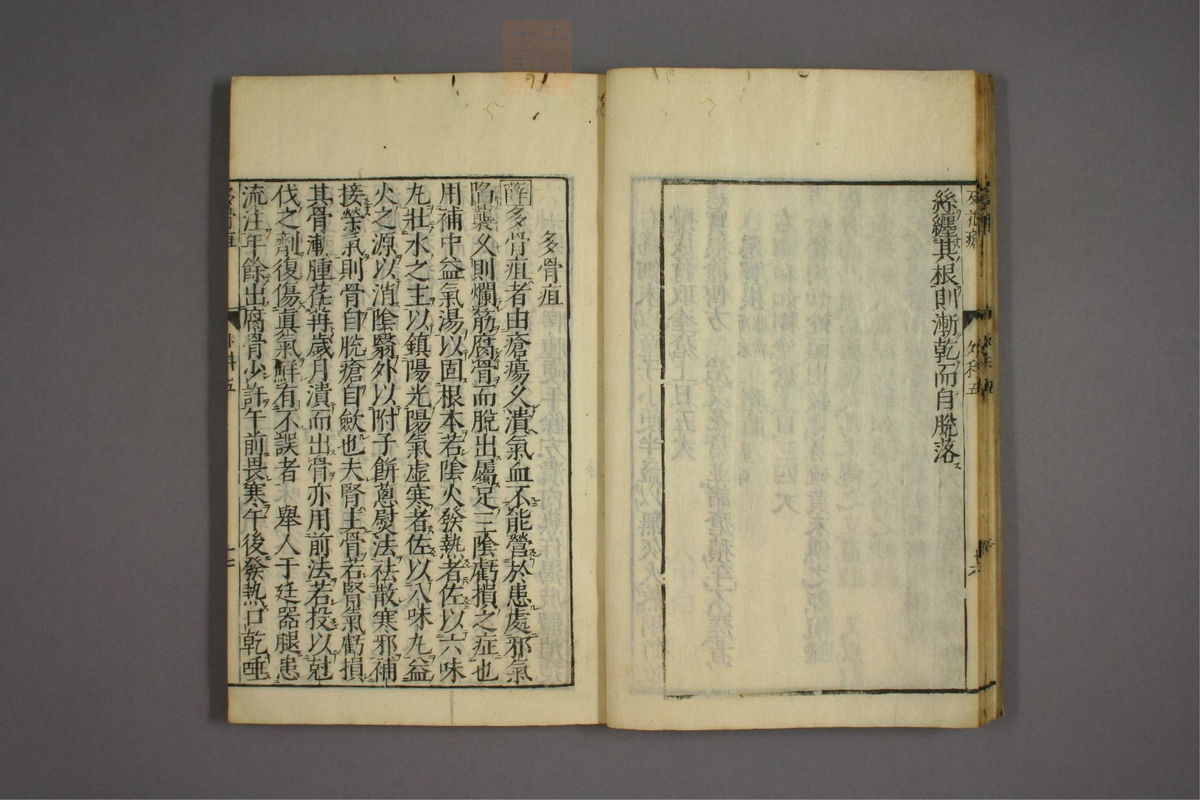 絲纏其根則漸乾而自脫落
多骨疽
薛多骨疽者由瘡瘍久潰氣血不能營於患處邪氣
陷襲久則爛筋腐骨而脫出屬足三陰虧損之症也
用補中益氣湯以固根本若陰火發熱者佐以六味
丸壯水之主以鎮陽光陽氣虛寒者佐以八味丸益
火之源以消陰翳外以附子餅蔥熨法祛散寒邪補
接榮氣則骨自脫瘡自歛也夫腎主骨若腎氣虧損
其骨漸腫荏苒歲月潰而出骨亦用前法若投以尅
伐之劑復傷眞氣鮮有不誤者 舉人于廷器腿患
流注年餘出腐骨少許午前畏寒午後發熱口乾唾
多骨疽